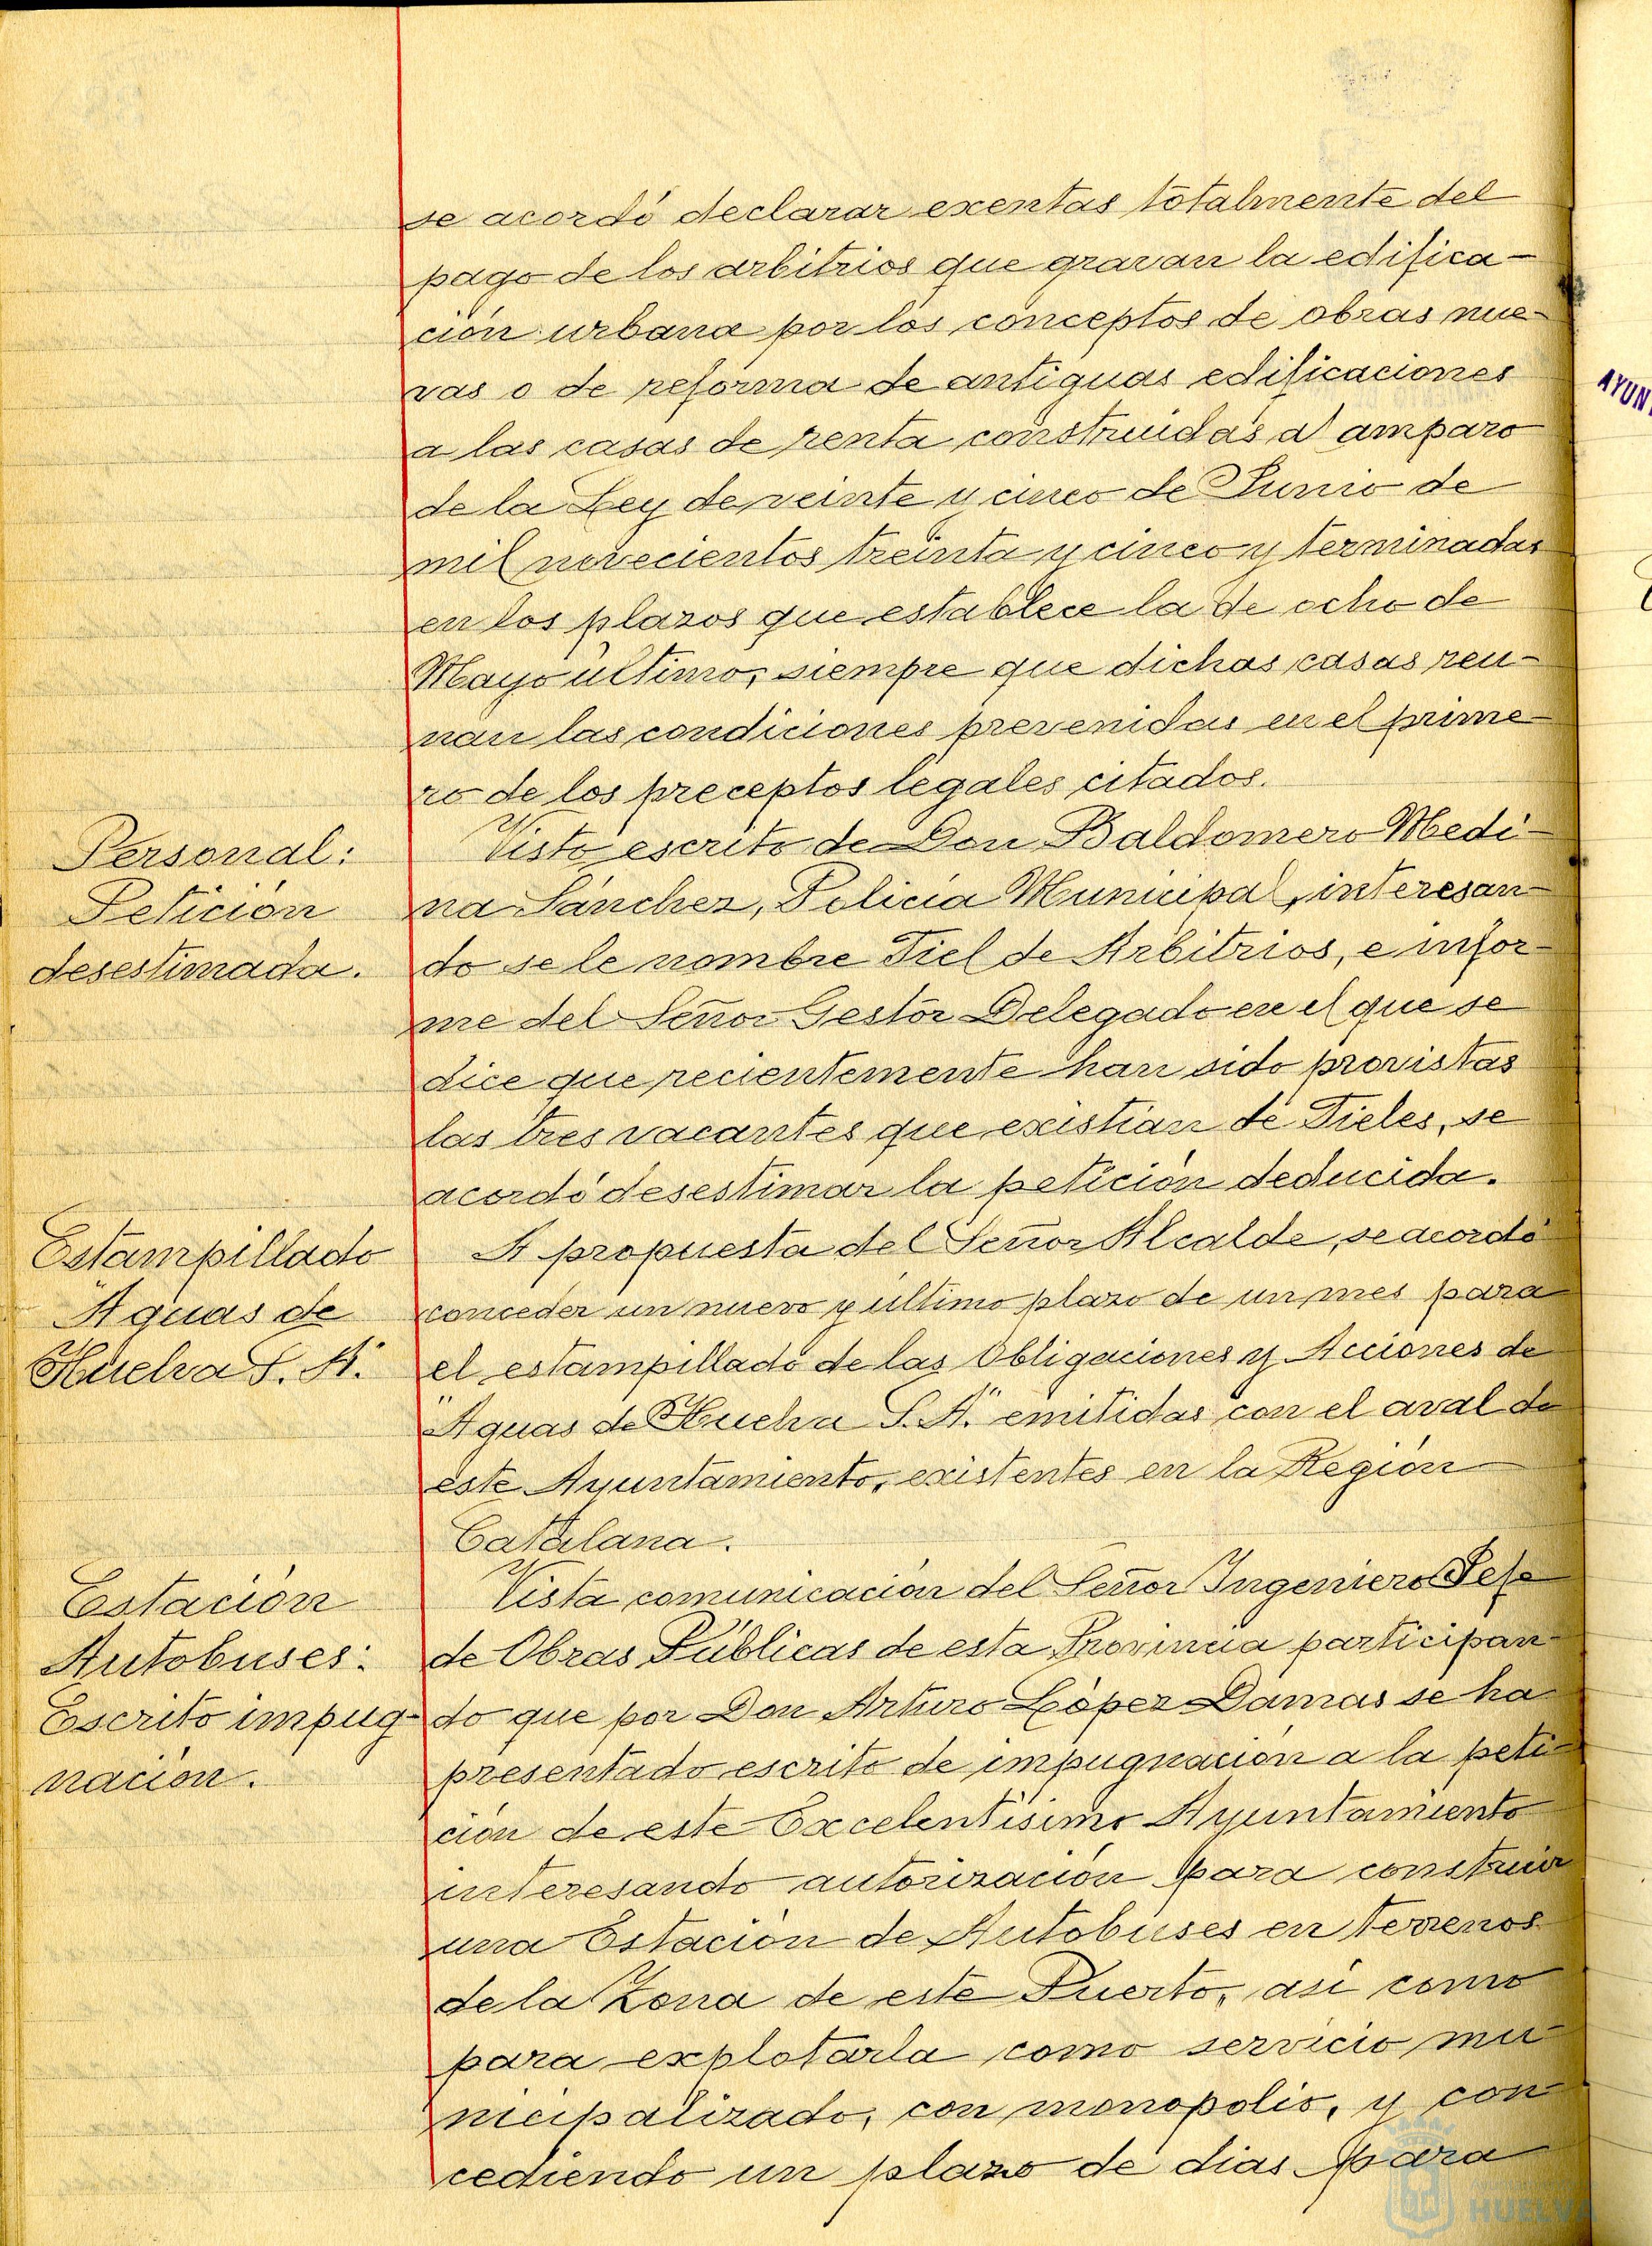 se acordó declarar exentas totalmente del
pago de los arbitrios que gravan la edifica-
ción urbana por los conceptos de obras nue-
vas o de reforma de antiguas edificaciones
a las casas de renta construidas al amparo
de la Ley de veinte y cinco de Junio de
mil novecientos treinta y cinco y terminadas
en los plazos que establece la de ocho de
Mayo último, siempre que dichas casas reu-
nan las condiciones prevenidas en el prime-
ro de los preceptos legales citados.
Personal:
Petición
desestimada.
Visto escrito de Don Baldomero Medi-
na Sánchez, Policía Municipal, interesan-
do se le nombre Fiel de Arbitrios, e infor-
me del Señor Gestor Delegado en el que se
dice que recientemente han sido provistas
las tres vacantes que existían de Fieles, se
acordó desestimar la petición deducida.
Estampillado
"Aguas de
Huelva S. A."
A propuesta del Señor Alcalde, se acordó
conceder un nuevo y último plazo de un mes para
el estampillado de las Obligaciones y Acciones de
"Aguas de Huelva S. A." emitidas con el aval de
este Ayuntamiento, existentes en la Región
Catalana.
Estación
Autobuses:
Escrito impug-
nación.
Vista comunicación del Señor Ingeniero Jefe
de Obras Públicas de esta Provincia participan-
do que por Don Arturo López Damas se ha
presentado escrito de impugnación a la peti-
ción de este Excelentísimo Ayuntamiento
interesando autorización para construir
una Estación de Autobuses en terrenos
de la Zona de este Puerto, así como
para explotarla como servicio mu-
nicipalizado, con monopolio, y con
cediendo un plazo de días para
AYUN
HUELVA